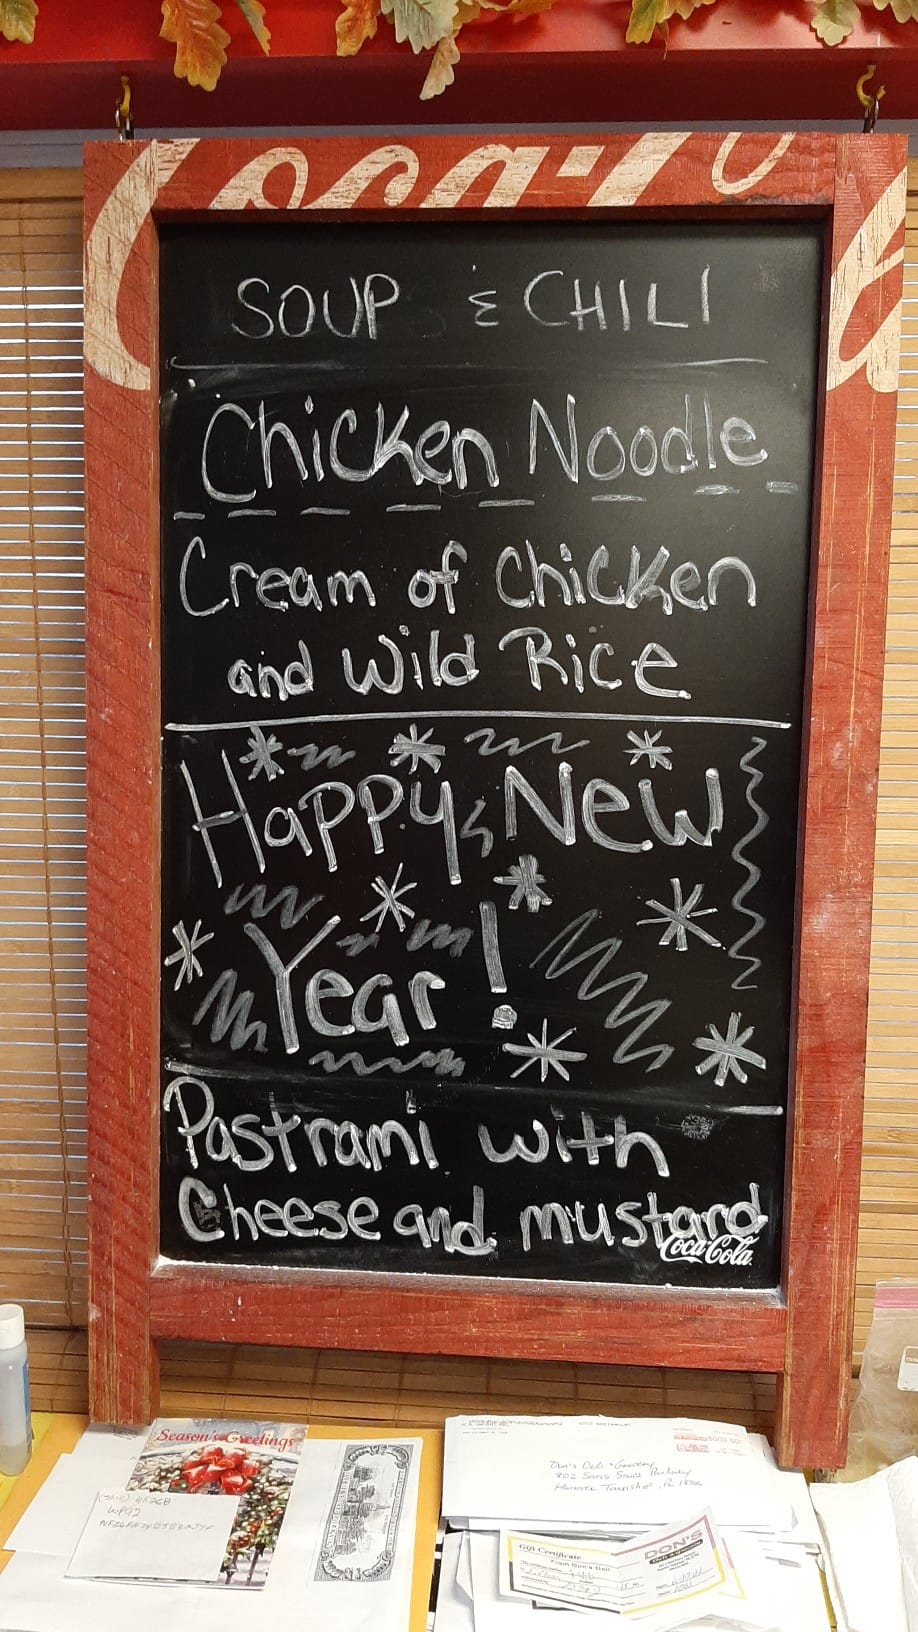 Coca-Cola
SOUP & CHILI
Chicken Noodle
Cream of Chicken
and Wild Rice
Happy New
Year!
Pastrami with
Cheese and mustard
Coca-Cola
Season's Greetings
Don's Deli & Grocery
802 Sans Souci Parkway
Hanover Township, Pa
DON'S
Gift Certificate
From Don's Deli